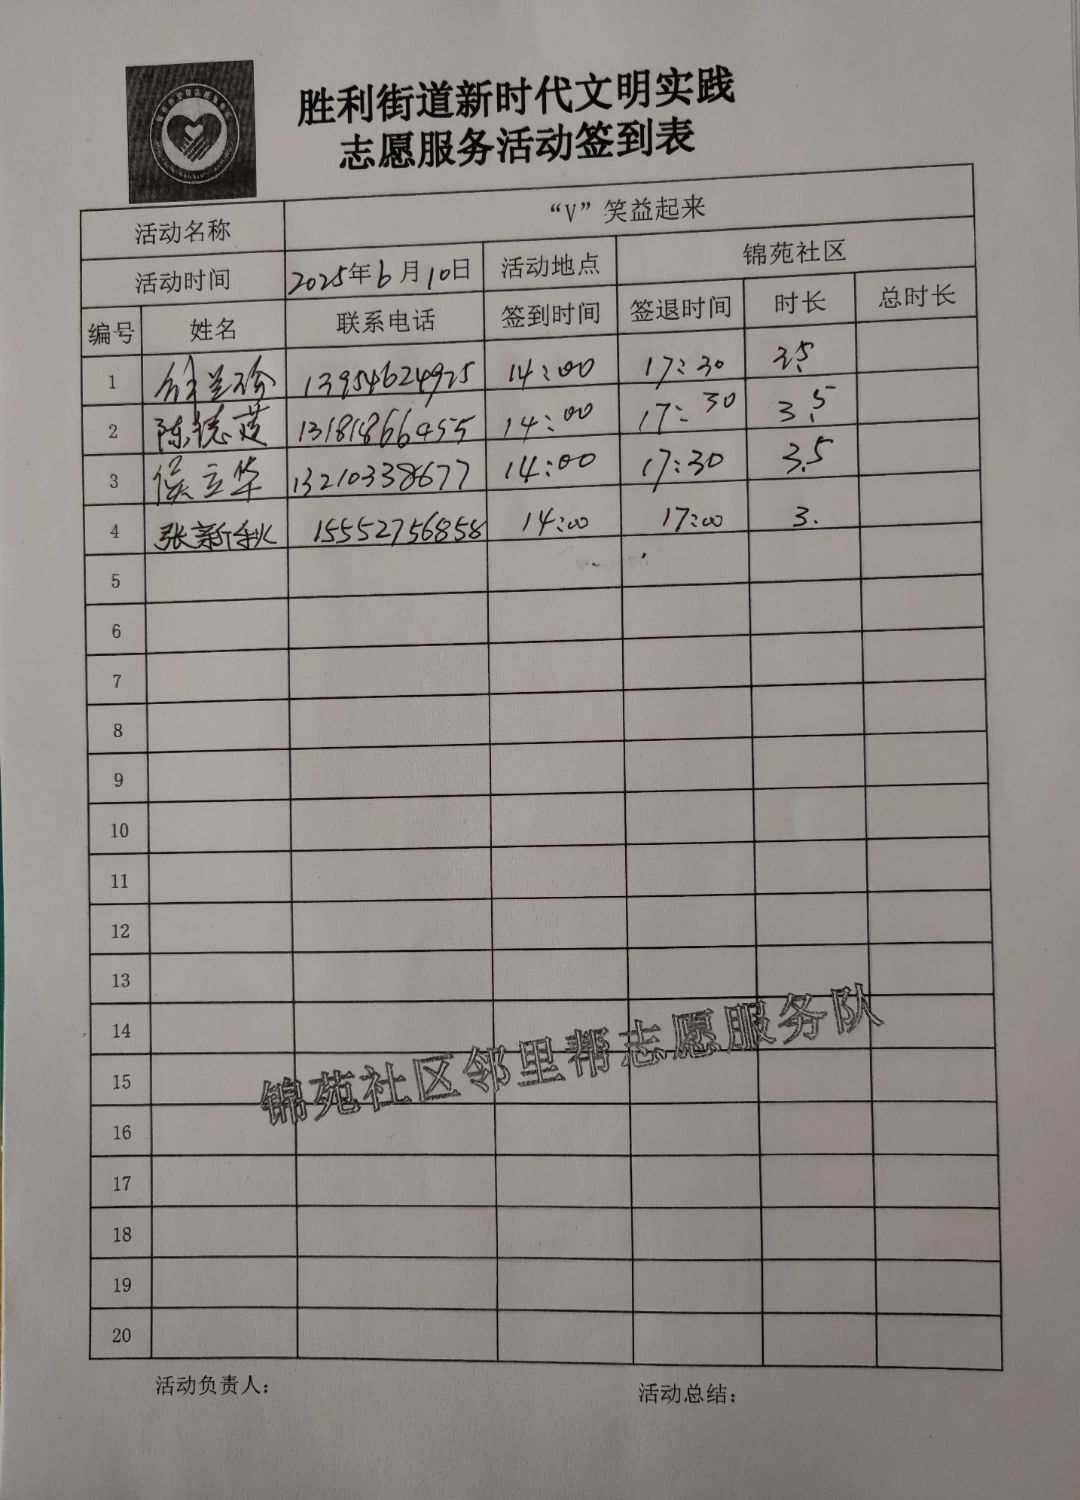 胜利街道新时代文明实践
志愿服务活动签到表
活动名称 “V”笑益起来
活动时间 2025年6月10日 活动地点 锦苑社区
编号 姓名 联系电话 签到时间 签退时间 时长 总时长
1 徐兰珍 13954624925 14:00 17:30 3.5
2 陈德莲 13181866455 14:00 17:30 3.5
3 侯立华 13210338677 14:00 17:30 3.5
4 张新秋 15552756858 14:00 17:00 3.
5
6
7
8
9
10
11
12
13
14
15
16
17
18
19
20
锦苑社区邻里帮志愿服务队
活动负责人： 活动总结：